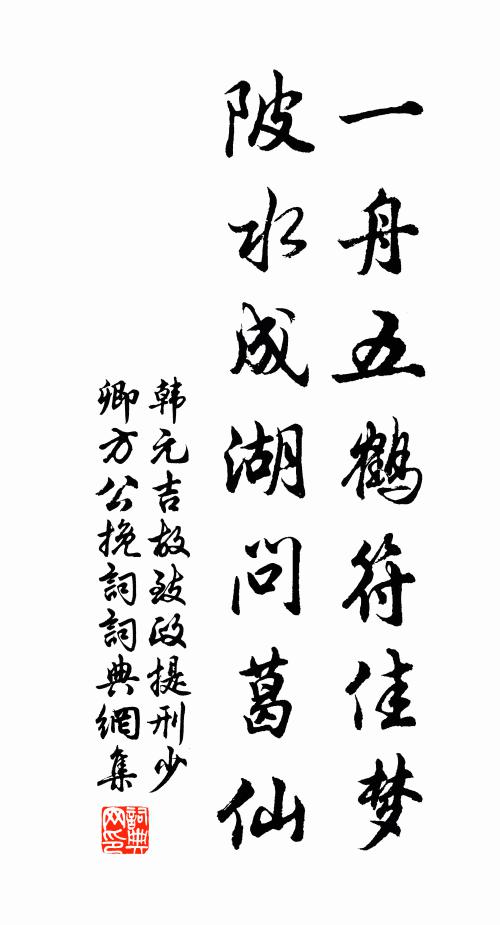 一舟五鹤符佳梦
陂水成湖问葛仙
韩元吉故致政提刑少
卿方公挽詞詞典網集
詞典
网印